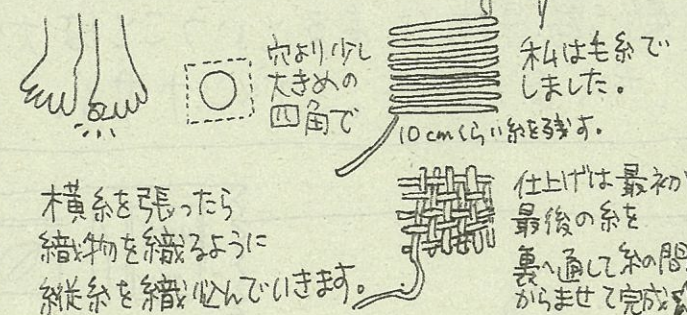 穴より少し
大きめの
四角で
私は毛糸で
しました。
10cmくらい糸を残す。
横糸を張ったら
織物を織るように
縦糸を織り込んでいきます。
仕上げは最初
最後の糸を
裏へ通して糸の間
からませて完成